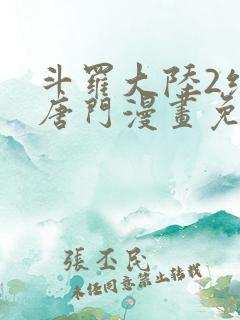 斗羅大陸2
唐門漫畫免
張丕民
未經同意禁止轉載